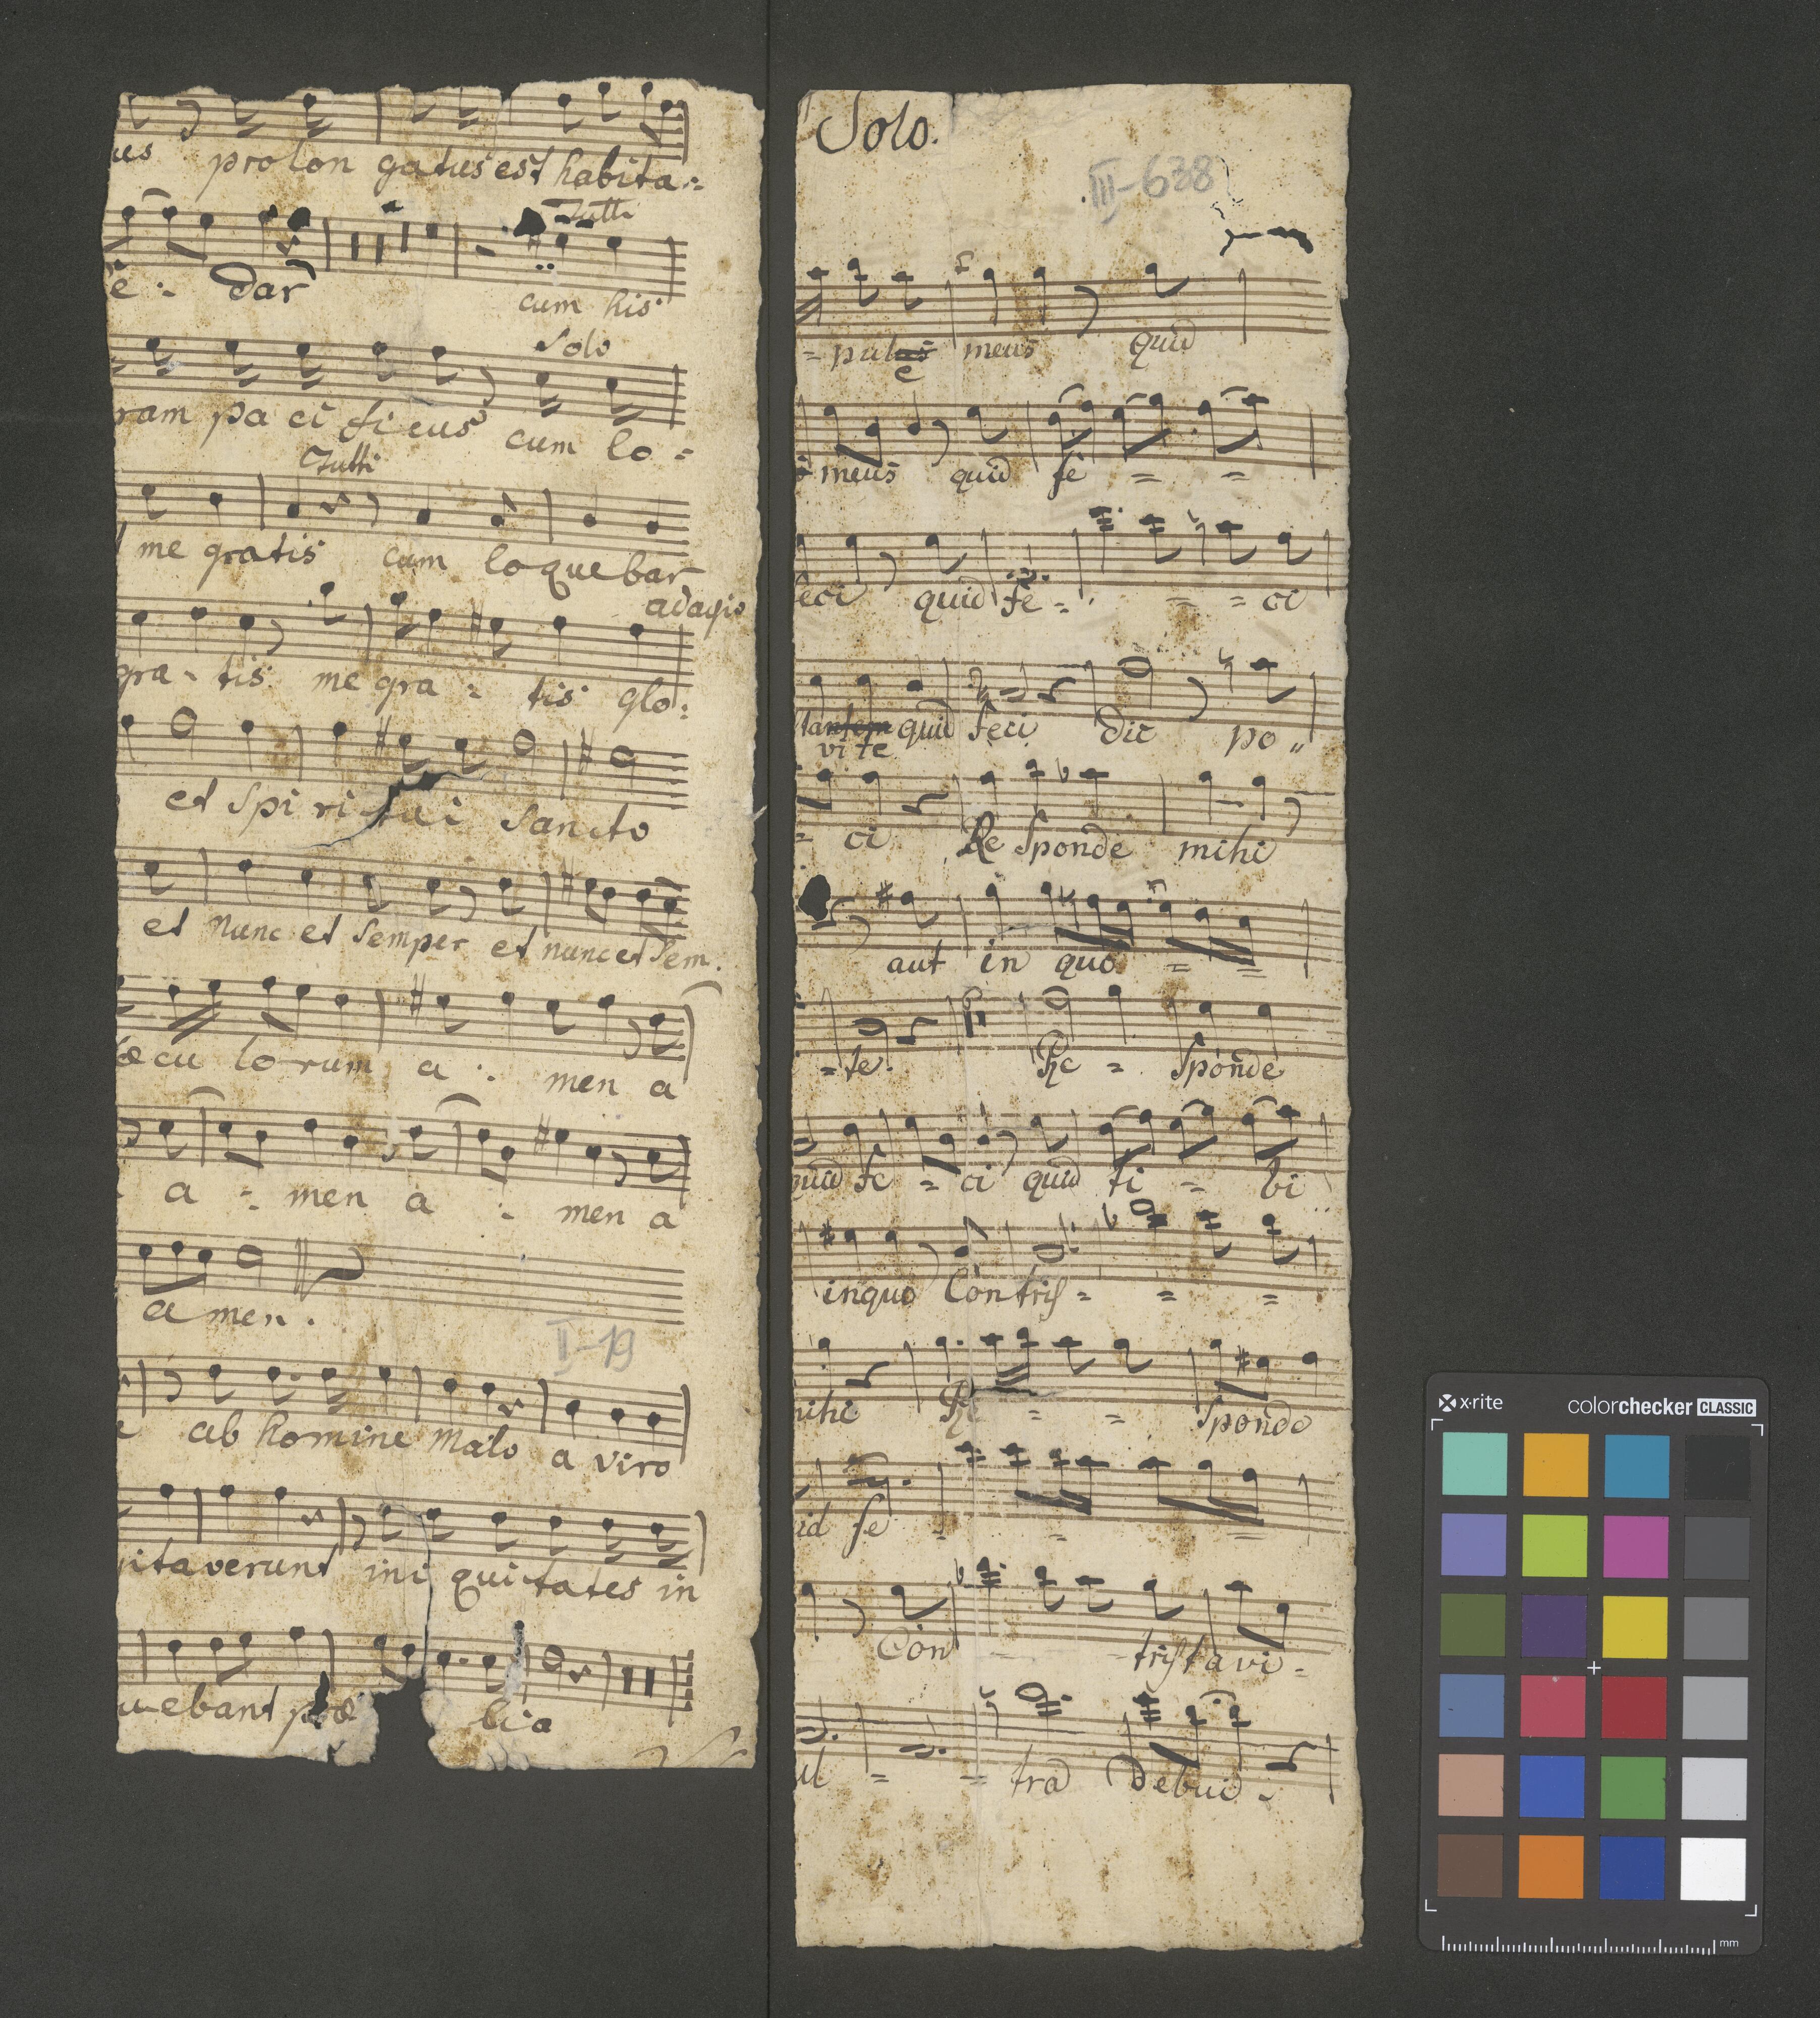 us prolon gatus est habita-
Tutti
e - dar cum his
Solo
ram pa ci ficus cum lo-
Tutti
me gratis cum loquebar
adagio
gra - tis me gra - tis glo:
et Spi ri tui Sancto
et nunc et Semper et nunc et Sem.
æcu lo rum a - men a
a - men a - men a
a men.
II-19
ab homine malo a viro
itaverunt ini qui tates in
uebant præ lia
Solo.
III-638
= pule meus quid
meus quid fe = =
eci quid fe - = = ci
vi te quid feci dic po"
= ci Re Sponde mihi
aut in quo = =
= te. Re = Sponde
quid fe = ci quid ti - bi
in quo Contris = = =
mihi Re = = Sponde
id fe = = =
Con - - tristavi =
ul = = tra Debui -
x-rite colorchecker CLASSIC
mm